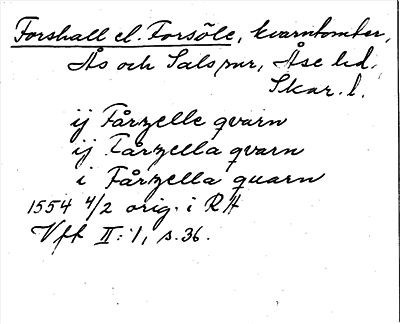 Forshall el. Forsöle, kvarntomter,
Ås och Sals snr, Åse hd.
Skar. l.
ij Fårzelle qvarn
ij Fårzella qvarn
i Fårzella quarn
1554 4/2 orig. i RA
Vff II:1, s. 36.